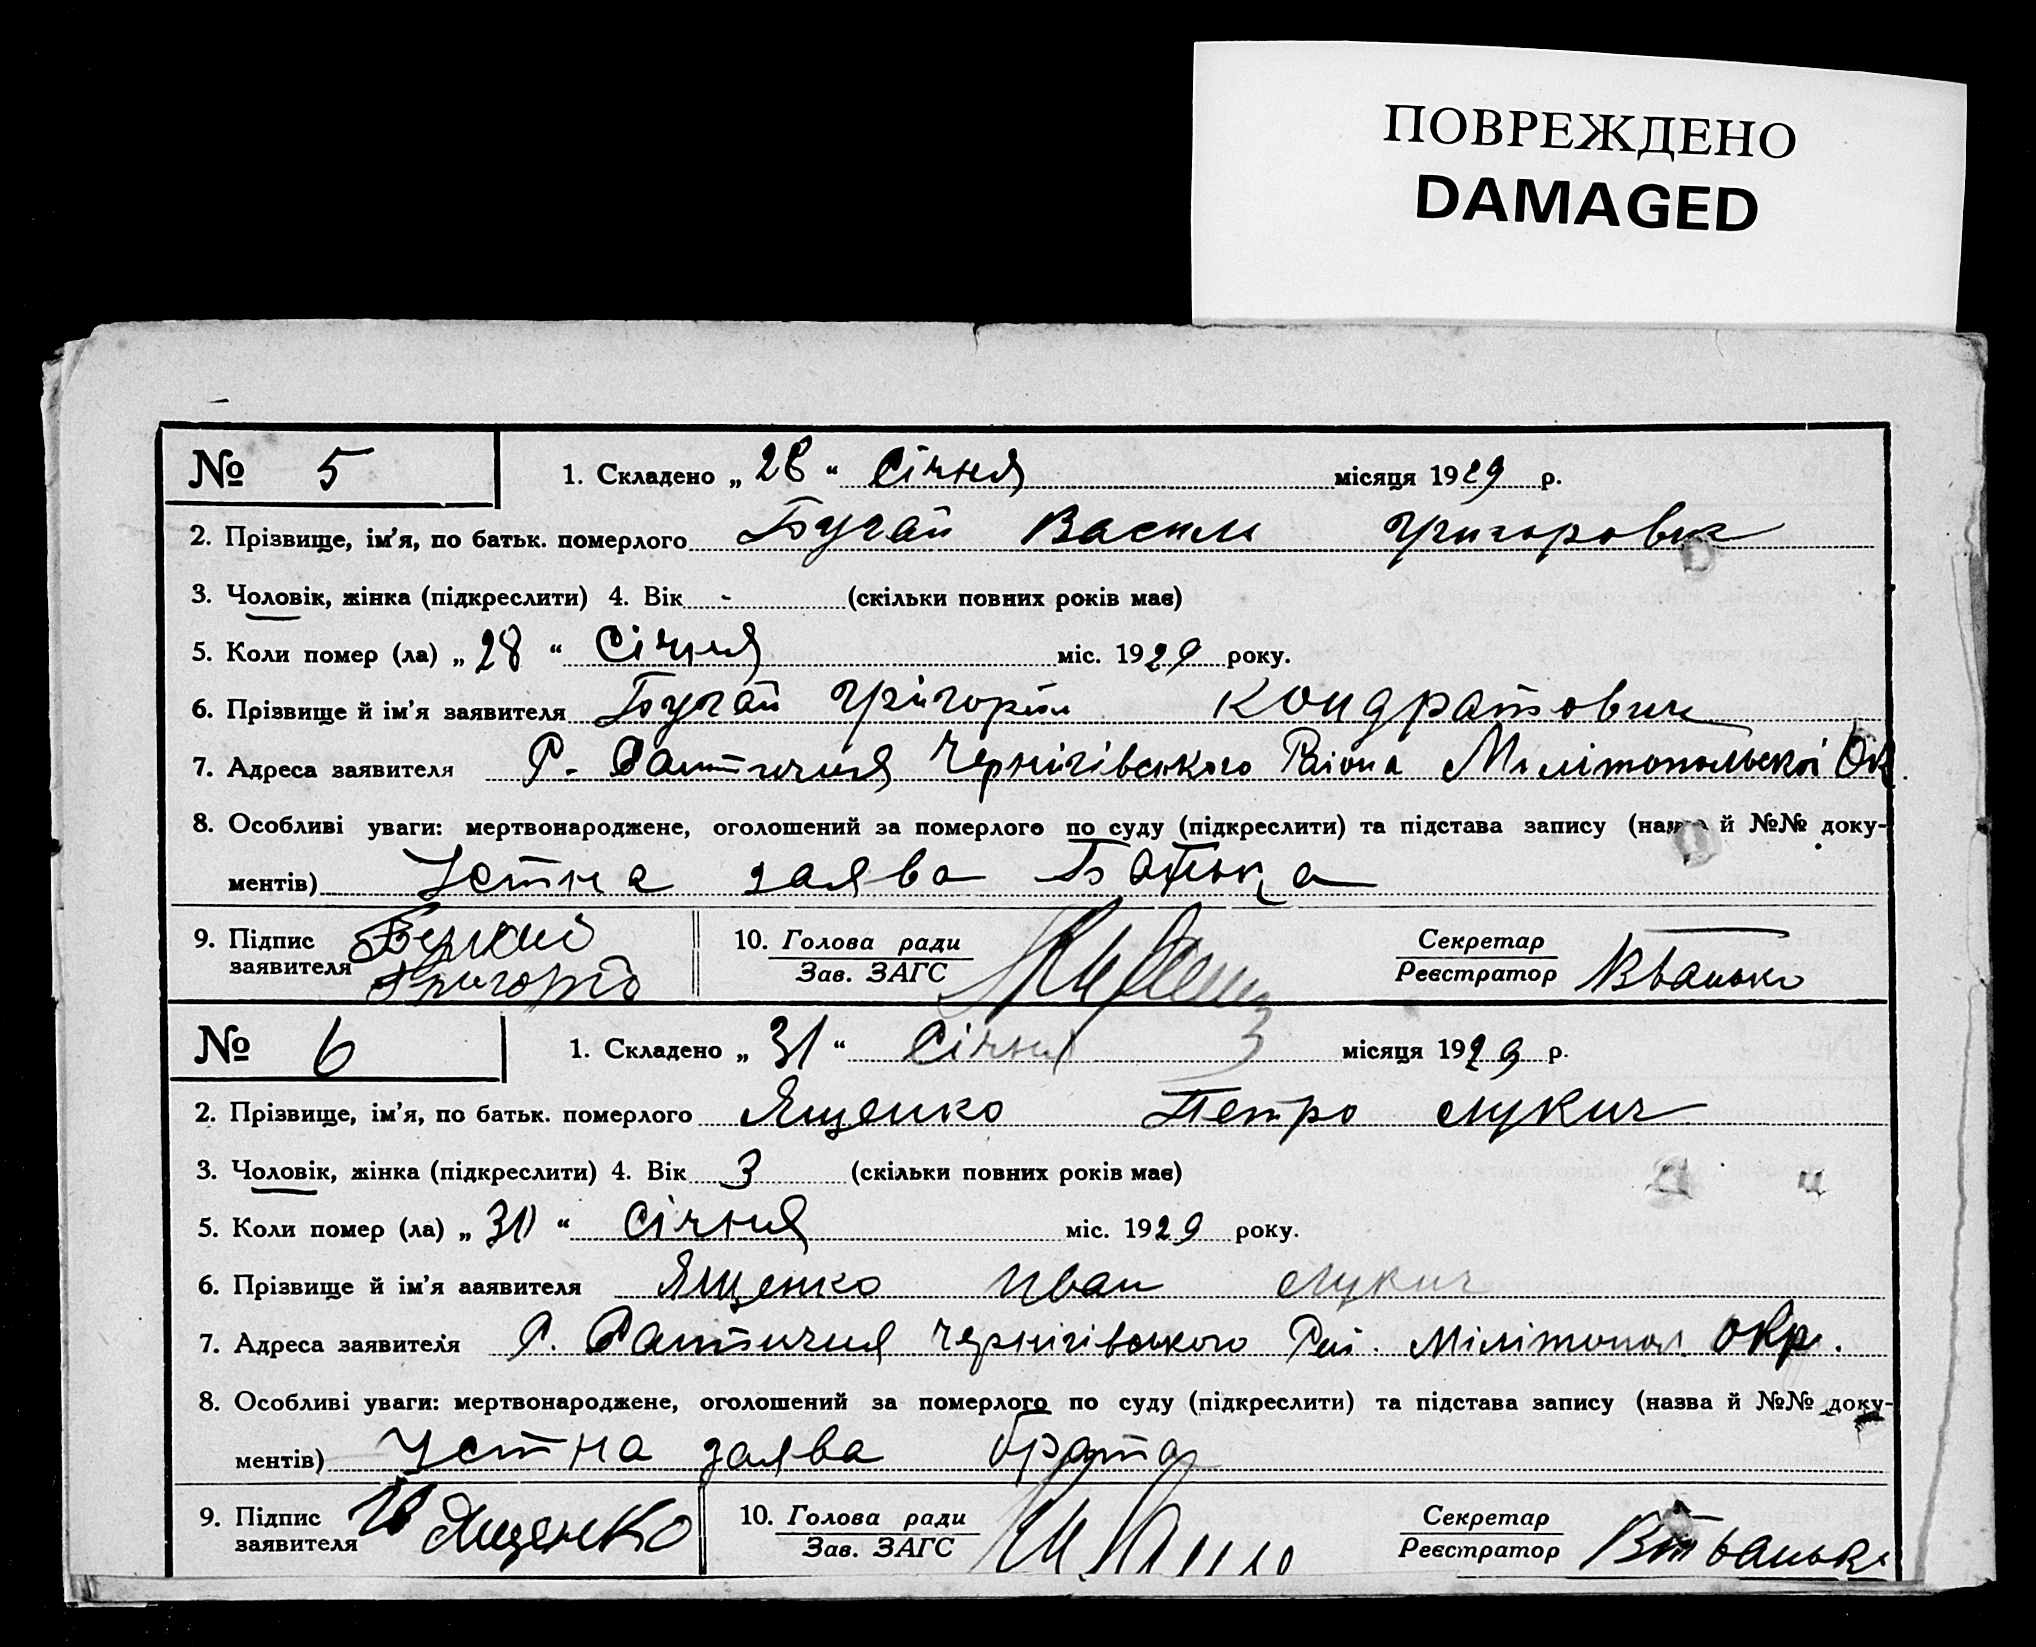 ПОВРЕЖДЕНО
DAMAGED
№ 5 1. Складено „ 28 “ Січня місяця 1929 р.
2. Прізвище, ім’я, по батьк. померлого Бугай Василь Григорович
3. Чоловік, жінка (підкреслити) 4. Вік - (скільки повних років має)
5. Коли помер (ла) „ 28 “ Січня міс. 1929 року.
6. Прізвище й ім’я заявителя Бугай Григорій Кондратович
7. Адреса заявителя Чернігівського Району Мелітопольскої Ок
8. Особливі уваги: мертвонароджене, оголошений за померлого по суду (підкреслити) та підстава запису (назва й №№ доку-
ментів) Устна заява Батька
9. Підпис заявителя 10. Голова ради Зав. ЗАГС Секретар Реєстратор
№ 6 1. Складено „ 31 “ Січня місяця 1929 р.
2. Прізвище, ім’я, по батьк. померлого Ященко Петро Лукич
3. Чоловік, жінка (підкреслити) 4. Вік 3 (скільки повних років має)
5. Коли помер (ла) „ 31 “ Січня міс. 1929 року.
6. Прізвище й ім’я ааявителя Ященко Иван Лукич
7. Адреса заявителя Чернігівського Рай. Мілітопол. окр.
8. Особливі уваги: мертвонароджене, оголошений за померлого по суду (підкреслити) та підстава запису (назва й №№ доку-
ментів) Устна заява брата
9. Підпис заявителя Ященко 10. Голова ради Зав. ЗАГС Секретар Реєстратор